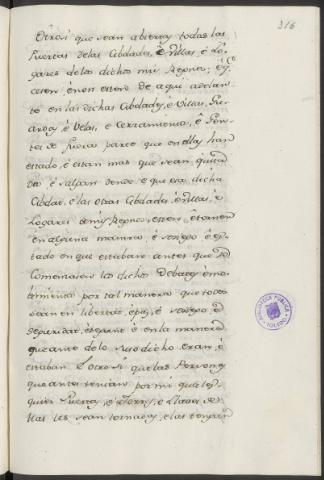 316
Otrosi que sean abiertas todas las
Puertas delas Cibdades, è Villas, è Lo-
gares delos dichos mis Regnos, è q.e
cesen è non esten de aqui adelan-
te en las dichas Cibdades, è Villas,
è Velas, è Cerramientos, è
de Puerta parte que en ellas han
estado, è estan mas que sean quita-
das è salgan dende è que esta dicha
Cibdad, è las otras Cibdades è Villas, è
Logares demis Regnos esten è tornen
en alguna manera è sosiego è es-
tado en que estaban antes que se
Comenzasen los dichos Debates è mo-
bimientos por tal manera que todos
sean en libertad, è paz, è sosiego è
seguridad, è segunt è en la manera
que ante delo susodicho eran, è
estaban. È otrosi que las Personas
que antes tenian por mi quales-
quier Puertas, è Torres, è Llaves de-
llas les sean tornadas, è las tengan
BIBLIOTECA PUBLICA
TOLEDO